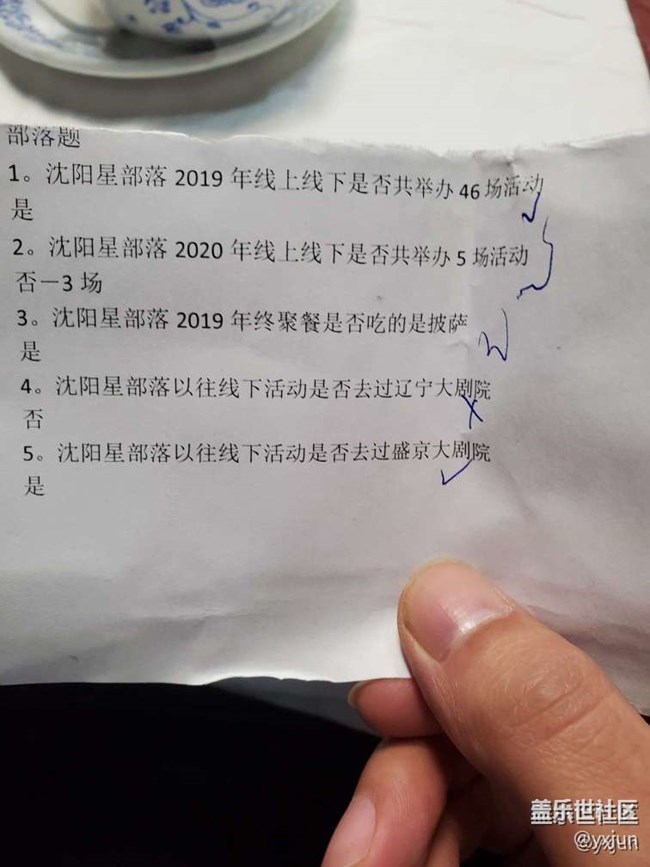 部落题
1。沈阳星部落 2019 年线上线下是否共举办 46 场活动
是
2。沈阳星部落 2020 年线上线下是否共举办 5 场活动
否一3 场
3。沈阳星部落 2019 年终聚餐是否吃的是披萨
是
4。沈阳星部落以往线下活动是否去过辽宁大剧院
否
5。沈阳星部落以往线下活动是否去过盛京大剧院
是
盖乐世社区
@yxjun